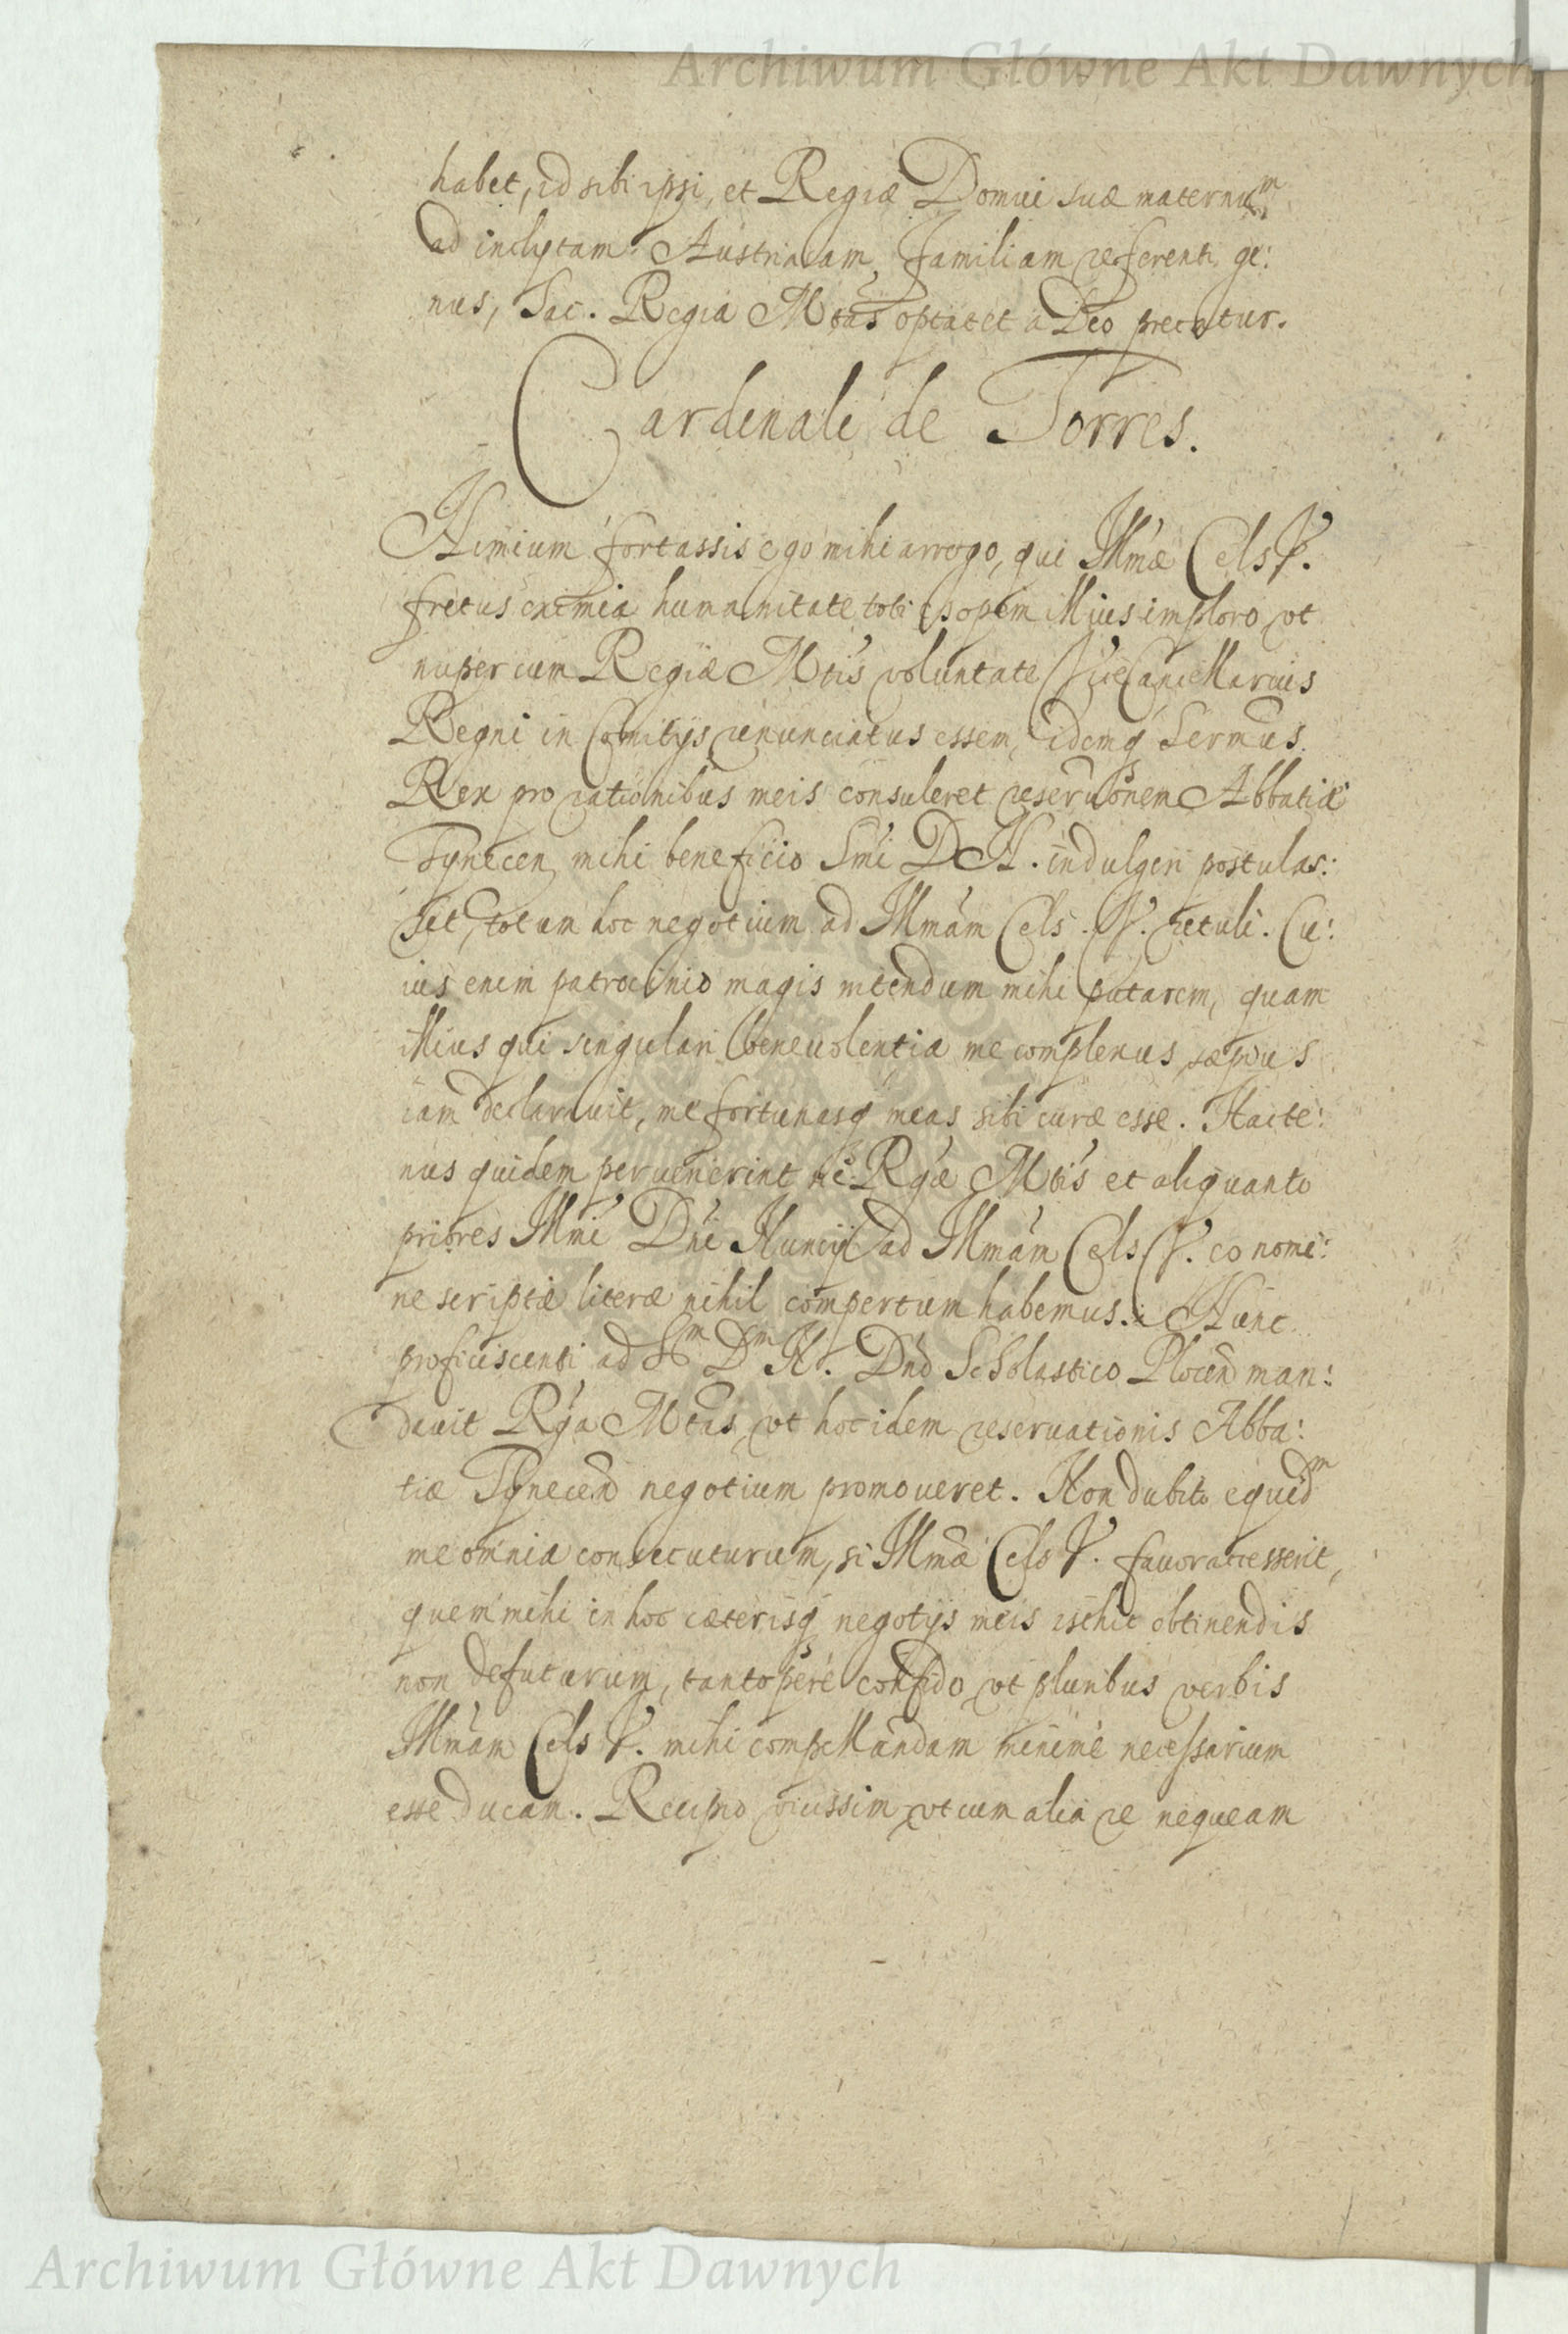 Archiwum Główne Akt Dawnych
habet, id sibi ipsi, et Regiæ Domui suæ maternum
ad inclytam Austriacam Familiam referenti ge:
nus, Sac. Regia Mtas optat et a Deo precatur.
Cardinali de Torres.
Nimium fortassis ego mihi arrogo, qui Illmæ Cels V.
fretus eximia humanitate toties opem illius imploro, vt
nuper cum Regiæ Mtis voluntate ViceCancellarius
Regni in Comitijs renunciatus essem, idemq Sermus
Rex pro rationibus meis consuleret reseruõnem Abbatiæ
Tynecen mihi beneficio Smi D N. indulgeri postulas:
set, totum hoc negotium ad Illmam Cels. V. retuli. Cu:
ius enim patrocinio magis nitendum mihi putarem, quam
illius qui singulari beneuolentia me complexus sæpius
iam declarauit, me fortunasq meas sibi curæ esse. Hacte:
nus quidem peruenerint ne Rgæ Mtis et aliquanto
priores Illmi Dni Nuncij ad Illmam Cels V. eo nomi:
ne scriptæ literæ nihil compertum habemus. Nunc
proficiscenti ad Sm Dm N. Dnō Scholastico Plocen man:
dauit Rga Mtas, vt hoc idem reseruationis Abba:
tiæ Tynecen negotium promoueret. Non dubito equidm
me omnia consecuturum, si Illmæ Cels V. fauor accesserit,
quem mihi in hoc cæterisq negotijs meis isthic obtinendis
non defuturum, tantopere confido vt pluribus verbis
Illmam Cels V. mihi compellandam minime necessarium
esse ducam. Recipio vicissim, vt cum alia re nequeam
Archiwum Główne Akt Dawnych